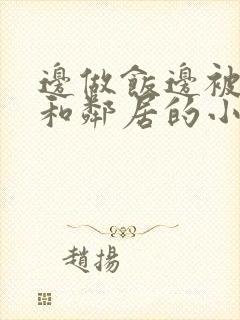 邊做飯邊被
和鄰居的小
趙揚